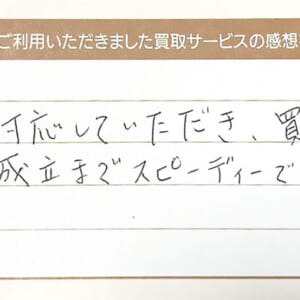 ご利用いただきました買取サービスの感想
対応していただき、買
成立までスピーディーで